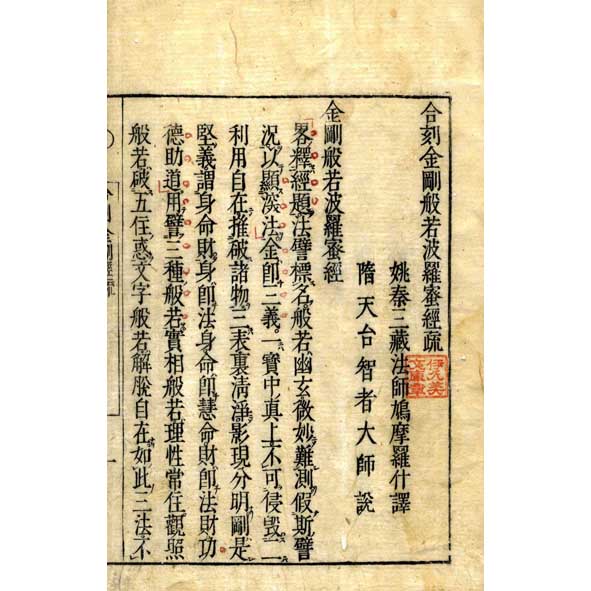 合刻金剛般若波羅蜜經疏
姚秦三藏法師鳩摩羅什譯
隋天台智者大師說
金剛般若波羅蜜經
畧釋經題法譬標名般若幽玄微妙難測假斯譬
況以顯深法金卽三義一寶中眞上不可侵毀二
利用自在摧破諸物三表裏清淨影現分明剛是
堅義謂身命財身卽法身命卽慧命財卽法財功
德助道用譬三種般若實相般若理性常住觀照
般若破五住惑文字般若解脫自在如此三法不